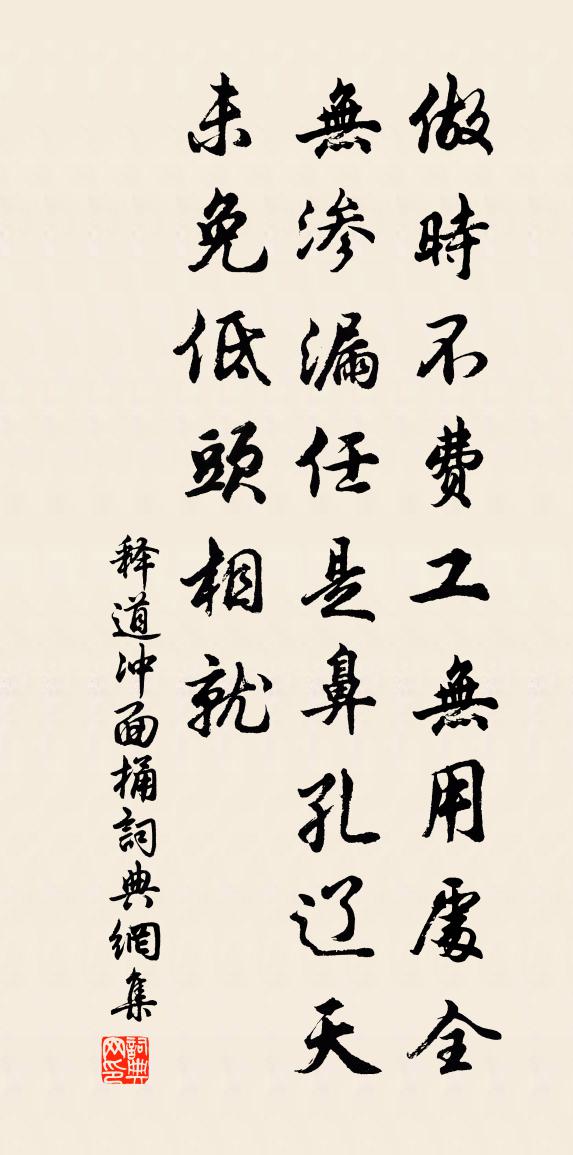 做時不費工無用處全
無渗漏任是鼻孔辽天
未免低頭相就
释道冲面桶詞典網集
詞典网印